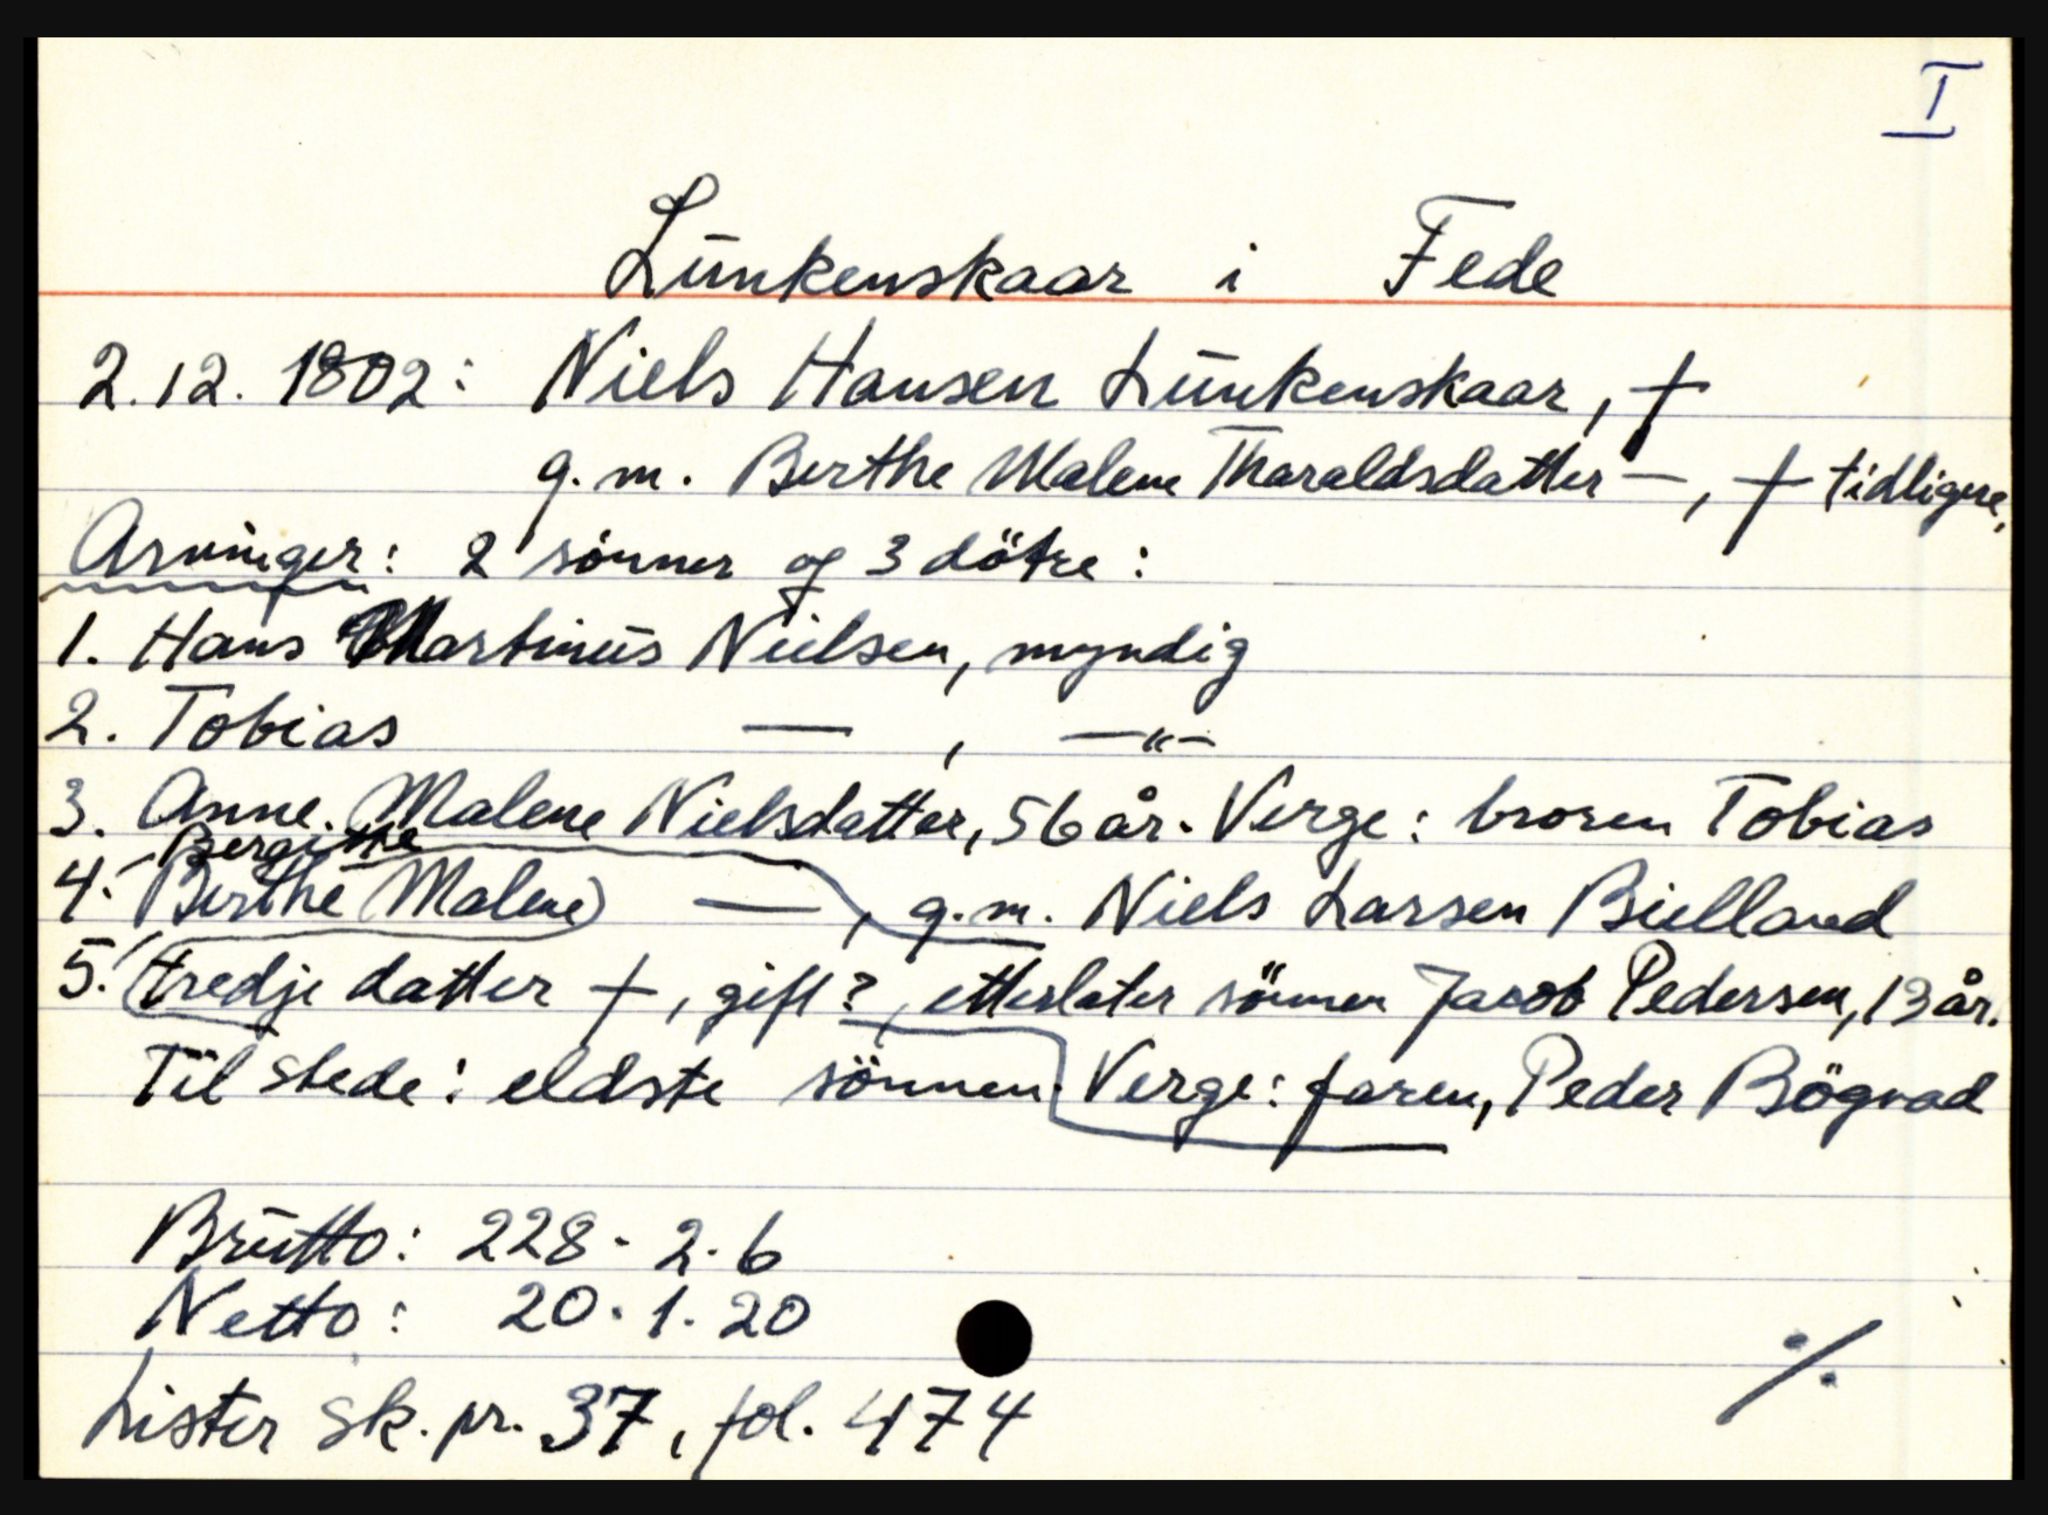 I
Lunkenskaar i Fede
2.12.1802: Niels Hansen Lunkenskaar, †
g.m. Berthe Malene Tharaldsdatter —, † tidligere.
Arvinger: 2 sønner og 3 døtre:
1. Hans Martinus Nielsen, myndig
2. Tobias — , —"—
3. Anne Malene Nielsdatter, 56 år. Verge: broren Tobias
Bergitthe
4. Berthe (Malene) — , g.m. Niels Larsen Bielland
5. tredje datter †, gift?, etterlater sønnen Jacob Pedersen, 13 år.
Til stede: eldste sønnen. Verge: faren, Peder Bögvad
Brutto: 228 - 2 - 6
Netto: 20 - 1 - 20
Lister sk. pr. 37, fol. 474
./.